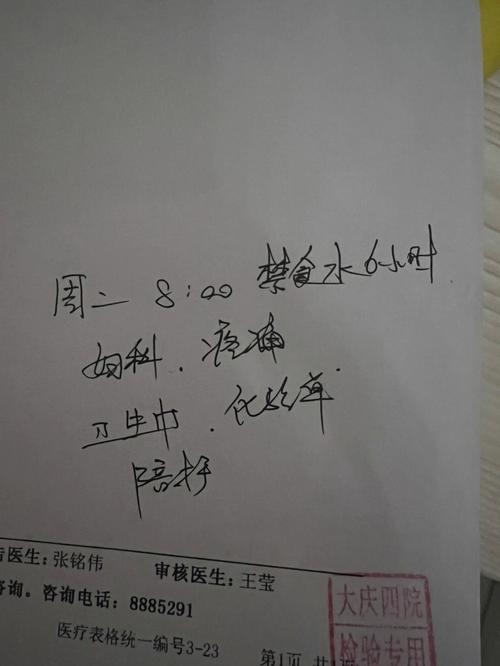 周二 8:00 禁食水6小时
妇科．疼痛
卫生巾．化验单．
陪护
告医生:张铭伟 审核医生:王莹
咨询。咨询电话:8885291
医疗表格统一编号3-23
第1页 共
大庆四院
检验专用